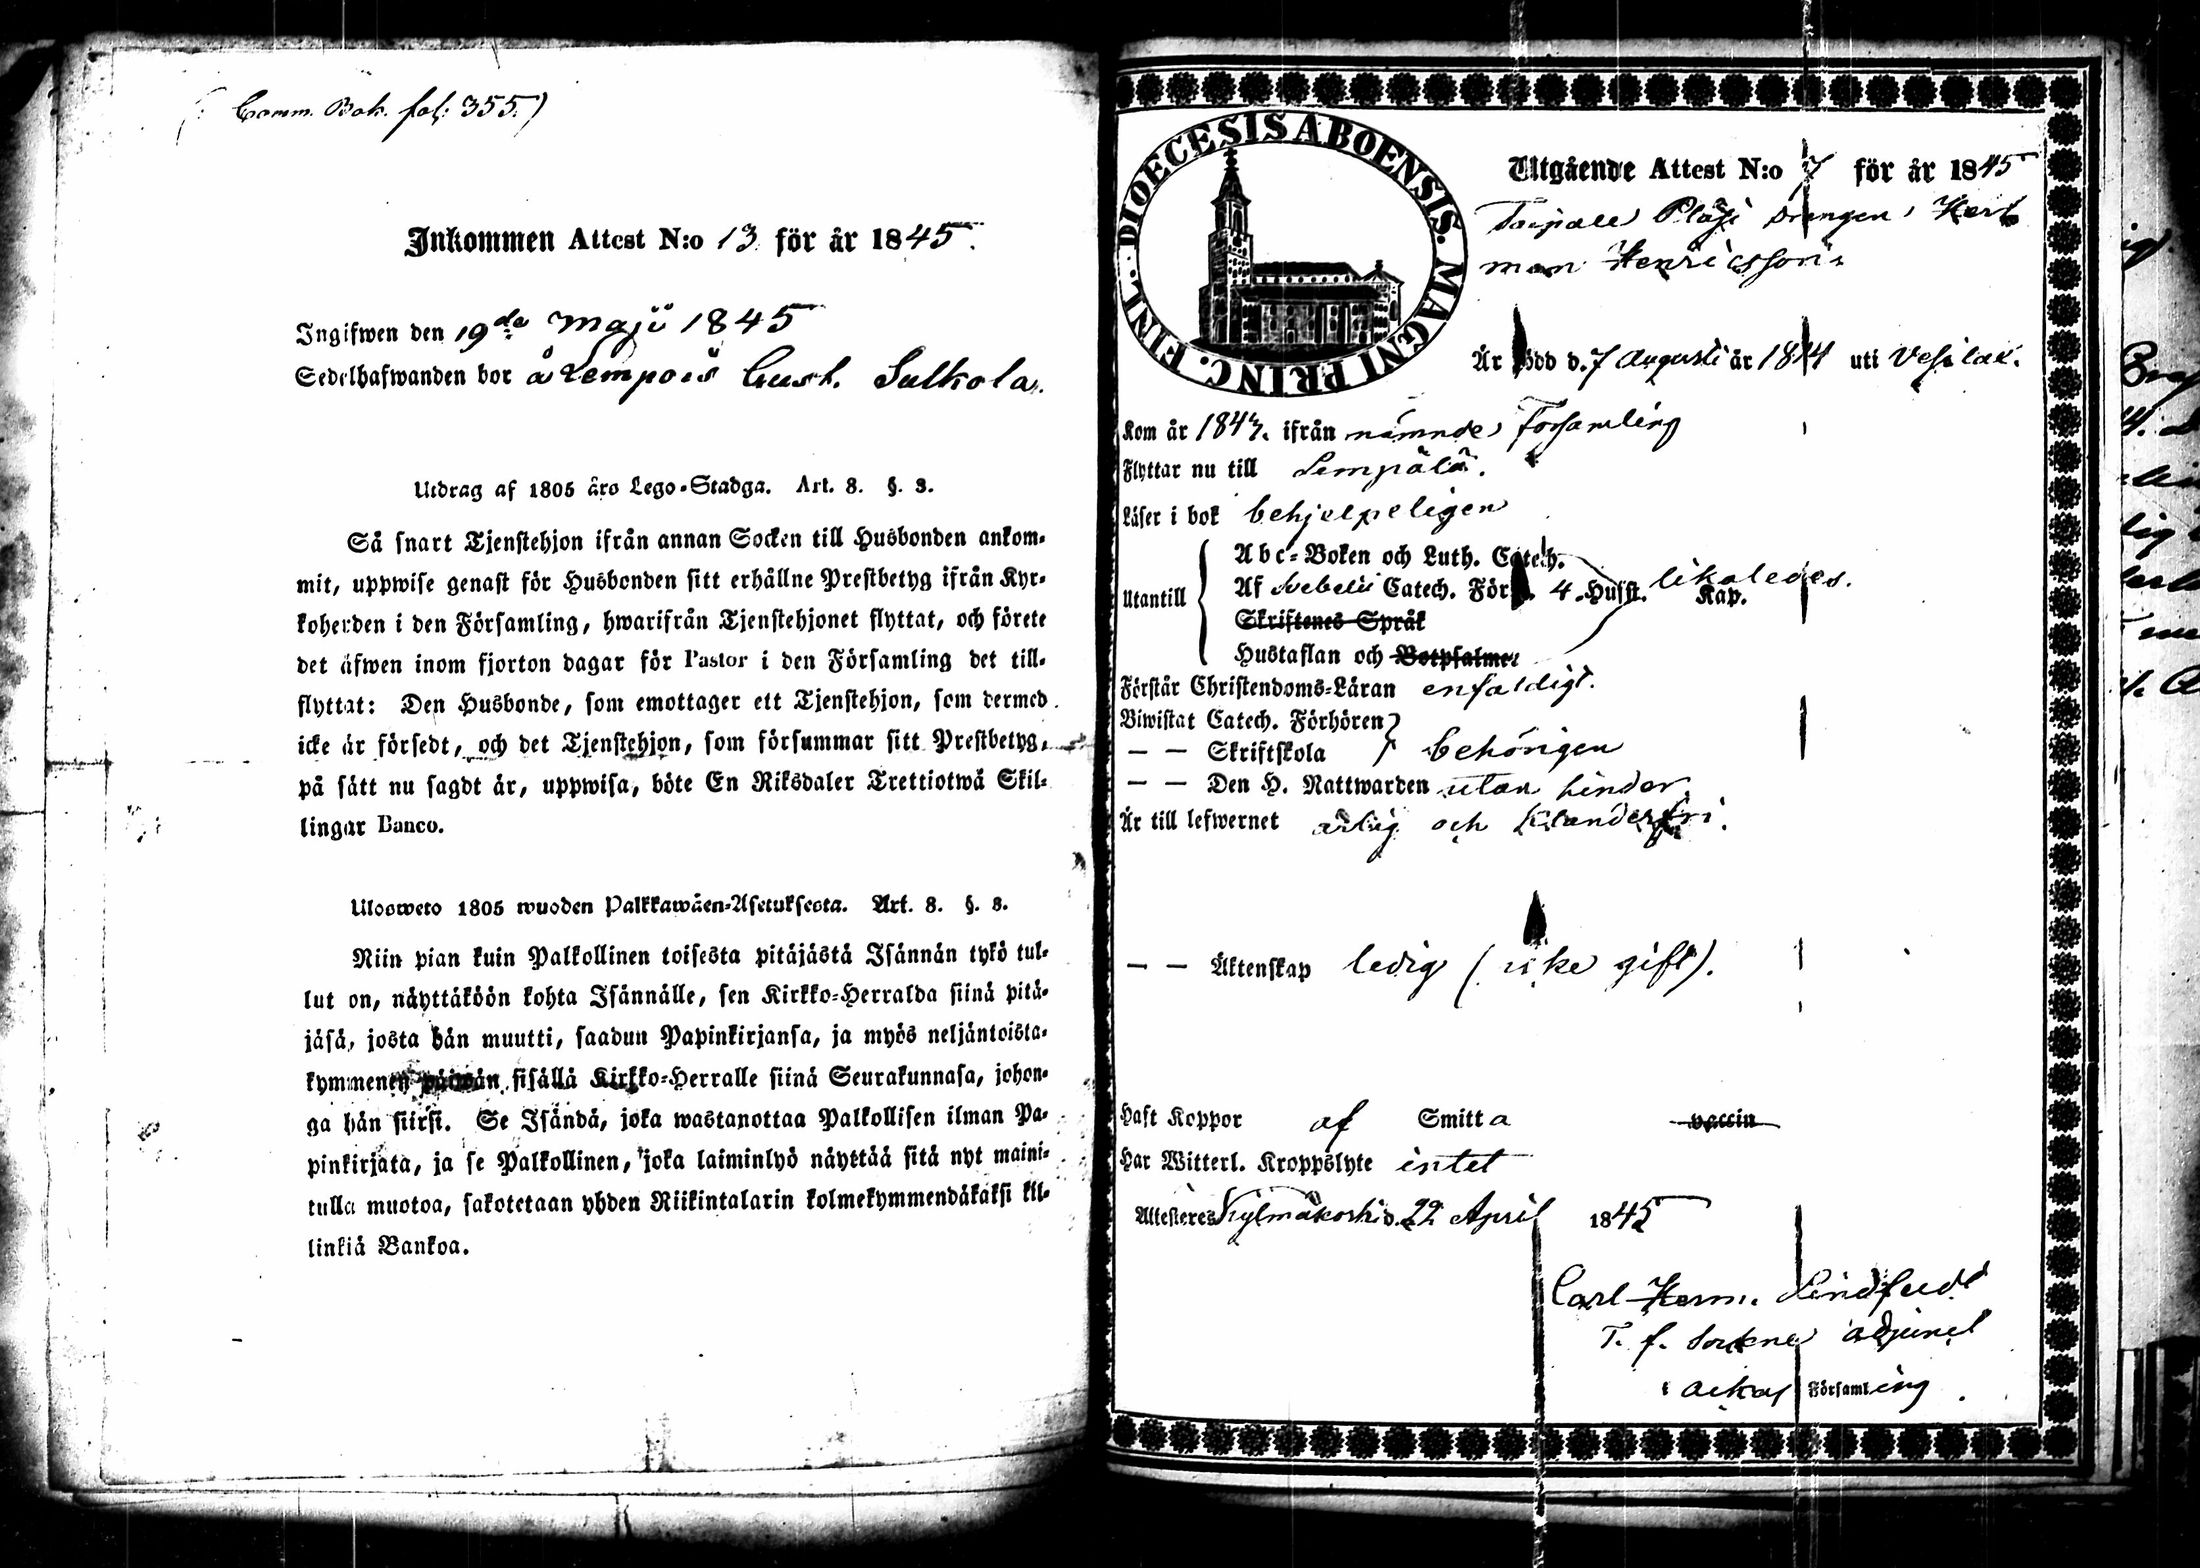 (: Comm. Bok. fol: 355.)
Inkommen Attest N:o 13 för år 1845.
Ingifwen den 19de Maji 1845
Sedelhafwanden bor å Lempois Gust. Sulkola.
Utdrag af 1805 års Lego-Stadga. Art. 8. §. 3.
Så snart Tjenstehjon ifrån annan Socken till Husbonden ankom-
mit, uppwise genast för Husbonden sitt erhållne Prestbetyg ifrån Kyr-
koherden i den Församling, hwarifrån Tjenstehjonet flyttat, och förete
det äfwen inom fjorton dagar för Pastor i den Församling det till-
flyttat: Den Husbonde, som emottager ett Tjenstehjon, som dermed
icke är försedt, och det Tjenstehjon, som försummar sitt Prestbetyg,
på sätt nu sagdt är, uppwisa, böte En Riksdaler Trettiotwå Skil-
lingar Banco.
Ulosweto 1805 wuoden Palkkawäen-Asetuksesta. Art. 8. §. 3.
Niin pian kuin Palkollinen toisesta pitäjästä Isännän tykö tul-
lut on, näyttäköön kohta Isännälle, sen Kirkko-Herralda siinä pitä-
jäsä, josta hän muutti, saadun Papinkirjansa, ja myös neljäntoista-
kymmenen päiwän sisällä Kirkko-Herralle siinä Seurakunnasa, johon-
ga hän siirsi. Se Isändä, joka wastanottaa Palkollisen ilman Pa-
pinkirjata, ja se Palkollinen, joka laiminlyö näyttää sitä nyt maini-
tulla muotoa, sakotetaan yhden Riikintalarin kolmekymmendäkaksi kil-
linkiä Bankoa.
DIOECESIS ABOENSIS. MAGNI PRINC. FINL.
Utgående Attest N:o 7 för år 1845
Taipale Drengen Her
man Henricsson
Är född d. 7 Augusti år 1814 uti Vesilax.
Kom år 1843. ifrån nämnde Församling
Flyttar nu till Lempälä.
Läser i bok behjelpeligen
Utantill
Abc-Boken och Luth. Catech.
Af Svebelii Catech. Förkl. 4 Hufst. Kap. likaledes.
Skriftenes Språk
Hustaflan och Botpsalmer
Förstår Christendoms-Läran enfaldigt.
Biwistat Catech. Förhören
— — Skriftskola behörigen
— — Den H. Nattwarden utan hinder
Är till lefwernet ärlig och klanderfri.
— — Äktenskap ledig (icke gift).
Haft Koppor af Smitta vaccin
Har Witterl. Kroppslyte intet
Attesteres Kylmäkoski d. 22 April 1845
Carl Herm. Lindstedt
T. f. Sockne adjunct
i Ackas Församling